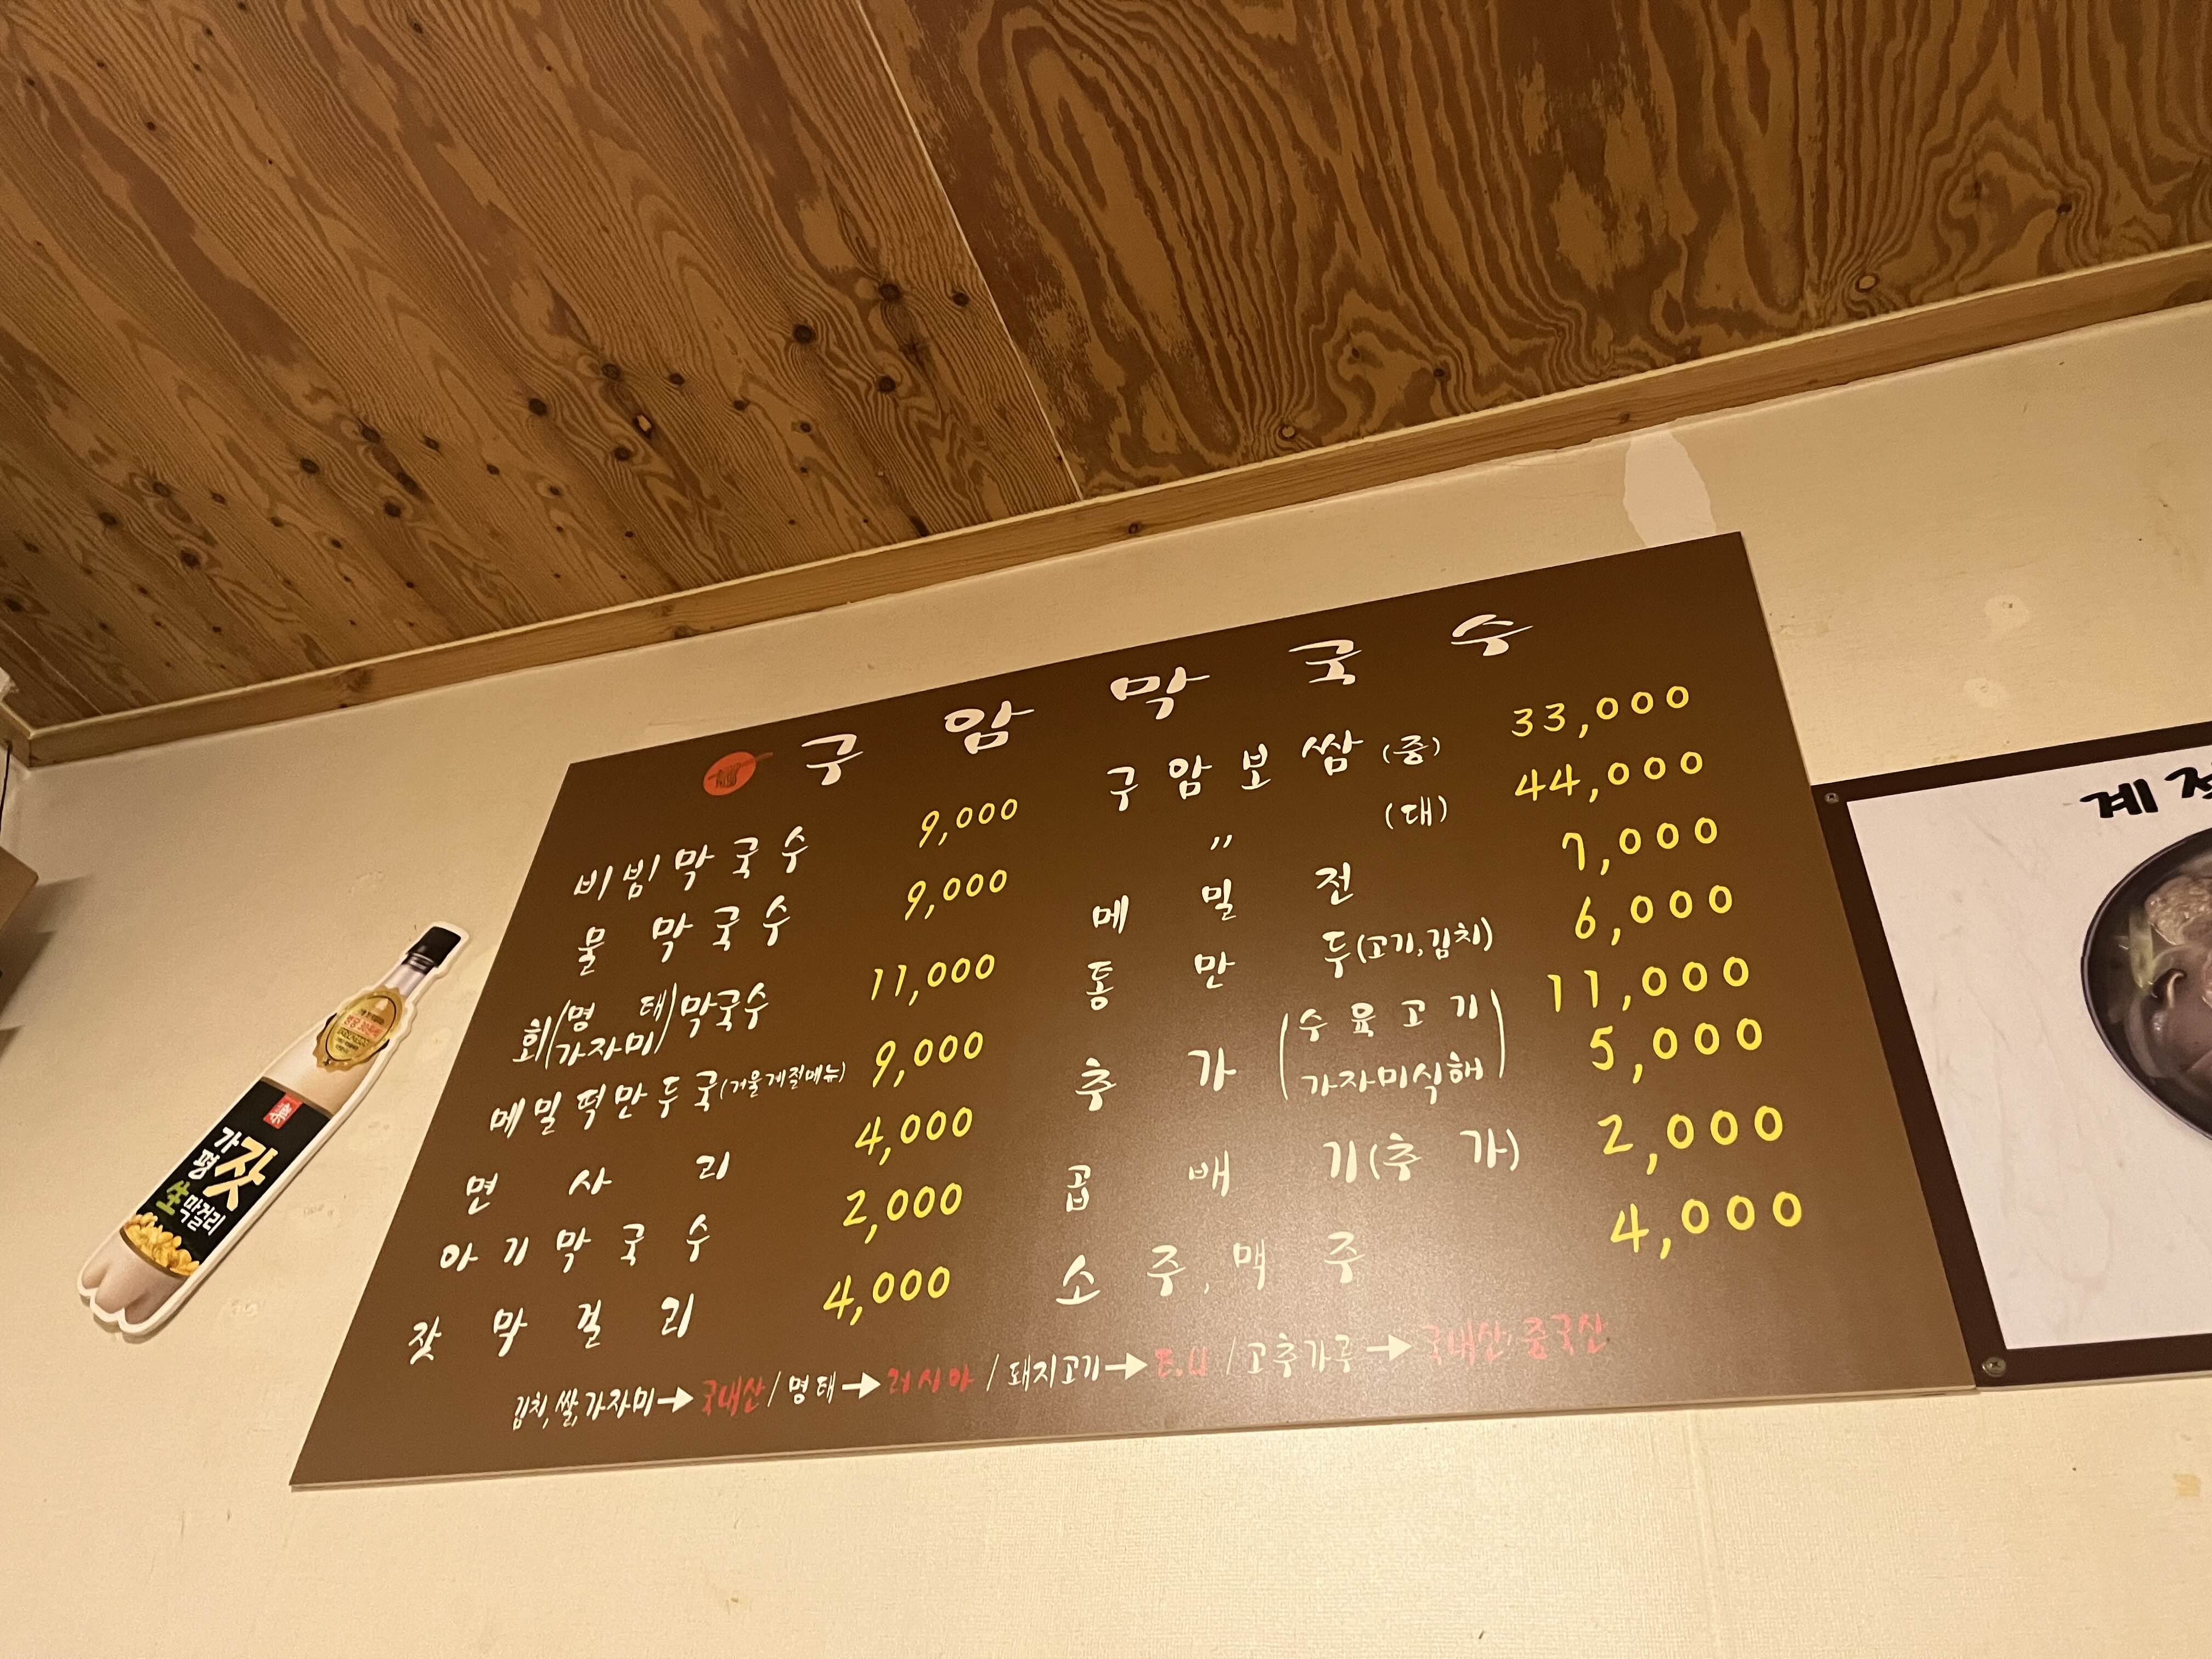 구암막국수
비빔막국수 9,000
물막국수 9,000
회(명태
가자미)막국수 11,000
메밀떡만두국(겨울계절메뉴) 9,000
면사리 4,000
아기막국수 2,000
잣막걸리 4,000
구암보쌈(중) 33,000
〃 (대) 44,000
메밀전 7,000
통만두(고기,김치) 6,000
추가(수육고기 11,000
가자미식해) 5,000
곱배기(추가) 2,000
소주,맥주 4,000
김치,쌀,가자미→국내산/명태→러시아/돼지고기→E.U/고추가루→국내산·중국산
가평
잣
生막걸리